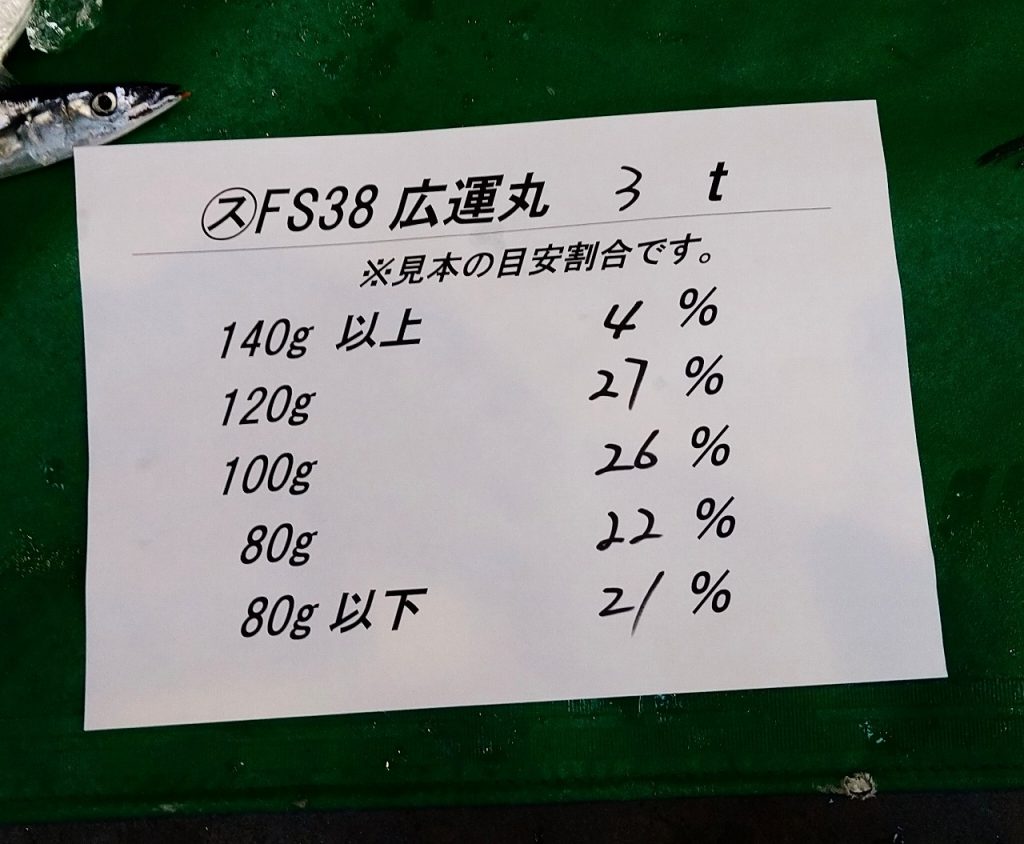 ㋜FS38 広運丸 3 t
※見本の目安割合です。
140g 以上 4 %
120g 27 %
100g 26 %
80g 22 %
80g 以下 21 %